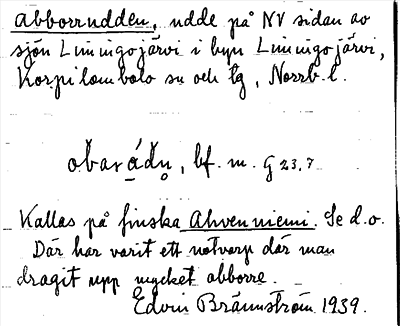 Abborrudden, udde på NV sidan av
sjön Liningojärvi i byn Liningojärvi,
Korpilombolo sn och tg, Norrb. l.
obarádu̥, bf. m. G 23.7
Kallas på finska Ahvenniemi. Se d.o.
Där har varit ett notvarp där man
dragit upp mycket abborre.
Edvin Brännström 1939.